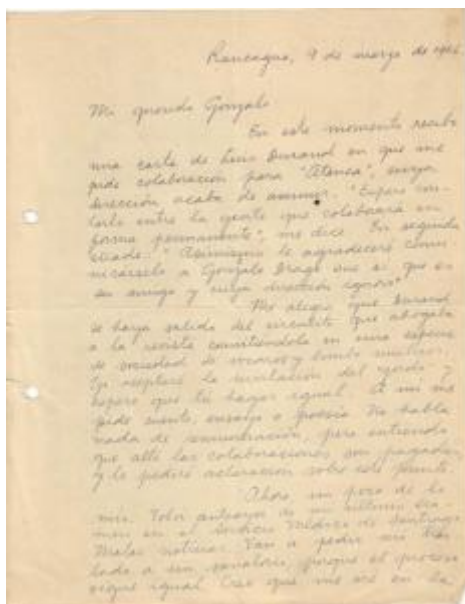 Rancagua, 9 de marzo de
Mi querido Gonzalo
En este momento recibo
una carta de Luis Durand en que me
pide colaboración para "Atenea", cuya
dirección acaba de asumir. "Espero con-
tarlo entre la gente que colaborará en
forma permanente", me dice. En seguida
añade: " Asimismo le agradeceré comu-
nicárselo a Gonzalo Drago que sé que es
su amigo y cuya dirección ignoro"
Me alegro que Durand
se haya salido del circulito que ahogaba
a la revista convirtiéndola en una especie
de sociedad de socorros y bombo mutuos.
Yo aceptaré la invitación del gordo y
espero que tú hagas igual. A mí me
pide cuento, ensayo o poesía. No habla
nada de remuneración, pero entiendo
que allí las colaboraciones son pagadas
y le pediré aclaración sobre este punto.
Ahora, un poco de lo
mío. Volví de mi último exa-
men en el Médico de Santiago
Malas noticias. Van a pedir mi tras
lado a un sanatorio, porque el proceso
sigue igual. Creo que me iré en la